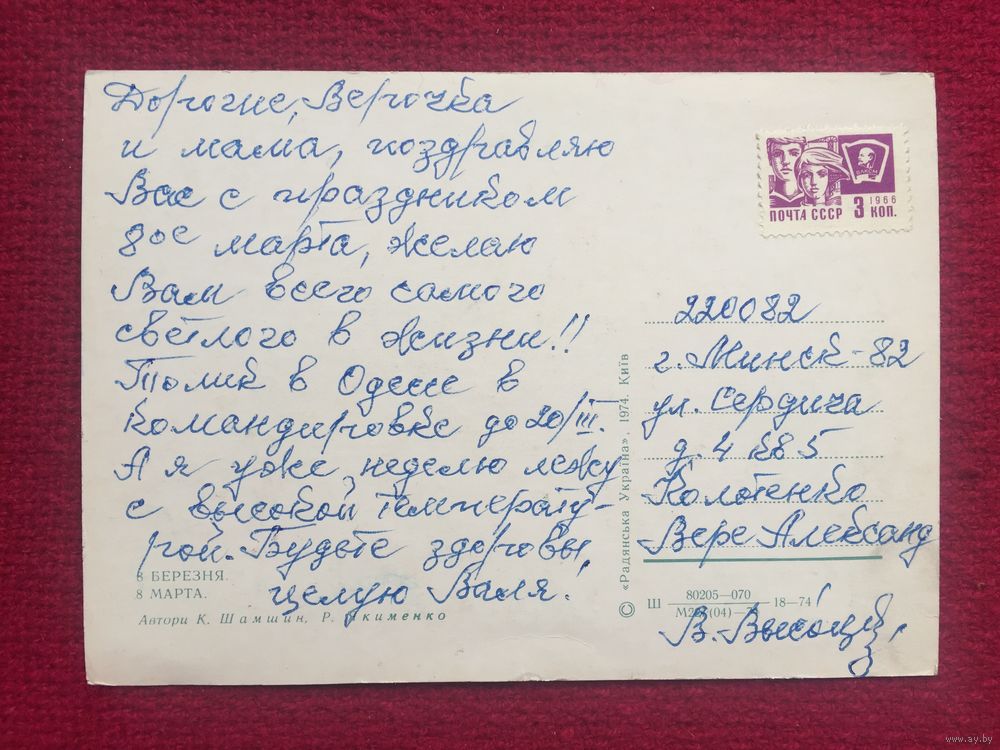 Дорогие, Верочка
и мама, поздравляю
Вас с праздником
8ое марта, желаю
Вам всего самого
светлого в жизни!!
Толик в Одессе в
командировке до 20/III.
А я уже, неделю лежу
с высокой температу-
рой. Будьте здоровы,
целую Валя!
8 БЕРЕЗНЯ.
8 МАРТА.
Автори К. Шамшин, Р. Якименко
© «Радянська Україна», 1974. Київ
ПОЧТА СССР 3 КОП.
1966
ВЛКСМ
220082
г. Минск-82
ул. Сердича
д. 4 кв 5
Колотенко
Вере Александ
Ш 80205—070 18—74
В. Высоцк
www.ay.by